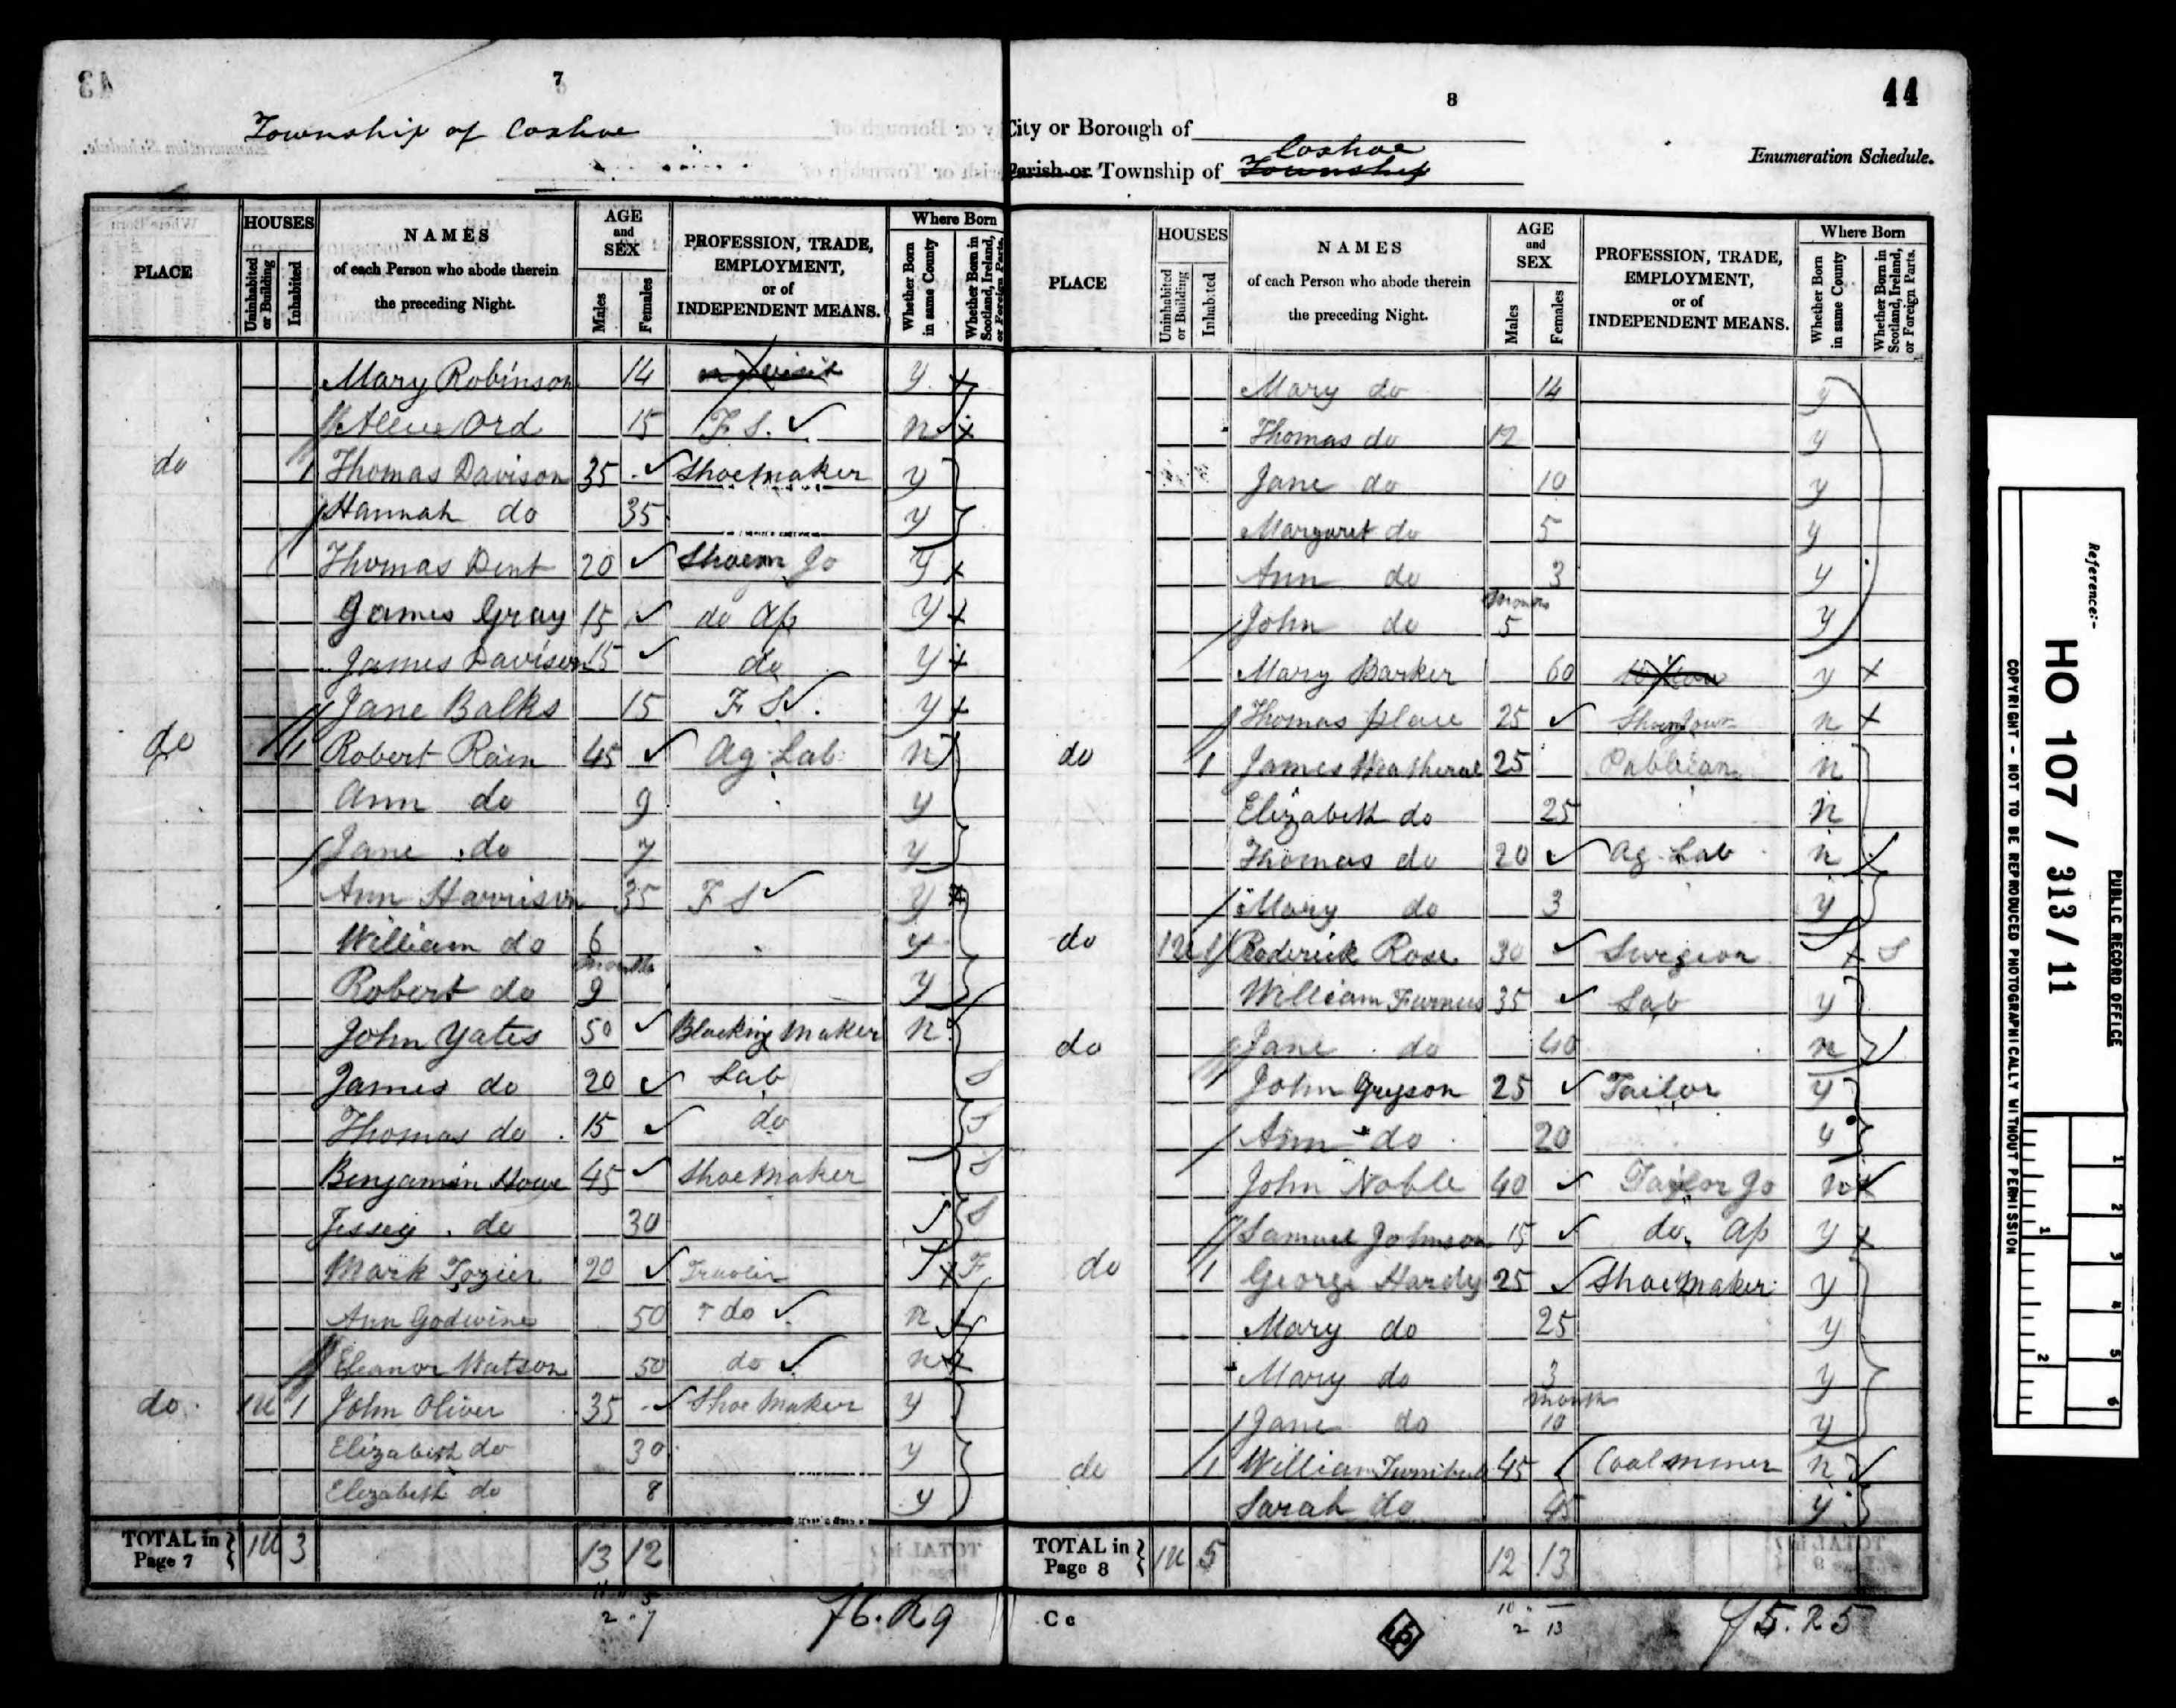 43
7
Township of Coxhoe
PLACE
HOUSES
Uninhabited or Building
Inhabited
NAMES
of each Person who abode therein
the preceding Night.
AGE and SEX
Males
Females
PROFESSION, TRADE,
EMPLOYMENT,
or of
INDEPENDENT MEANS.
Where Born
Whether Born in same County
Whether Born in Scotland, Ireland, or Foreign Parts.
Mary Robinson 14 y
Ord 15 F S. n
do 1 Thomas Davison 35 Shoemaker y
Hannah do 35 y
Thomas Dent 20 Shoem Jo y
James Gray 15 do Ap y
James Davison 15 do y
Jane Balks 15 F S y
do 1 Robert Rain 45 Ag Lab n
Ann do 9 y
Jane do 7 y
Ann Harrison 35 F S y
William do 6 y
months
Robert do 9 y
John Yates 50 Blacking Maker n
James do 20 Lab S
Thomas do 15 do S
Benjamin Howe 45 Shoe Maker S
Jessey do 30 S
Mark Tozier 20 F
Ann Godwine 50 do n
Eleanor Watson 50 do n
do 1U 1 John Oliver 35 Shoe Maker y
Elizabeth do 30 y
Elizabeth do 8 y
TOTAL in Page 7 1U 3 13 12
11 5
2 7
76. R9
44
8
City or Borough of
Coxhoe
Parish or Township of Township
Enumeration Schedule.
PLACE
HOUSES
Uninhabited or Building
Inhabited
NAMES
of each Person who abode therein
the preceding Night.
AGE and SEX
Males
Females
PROFESSION, TRADE,
EMPLOYMENT,
or of
INDEPENDENT MEANS.
Where Born
Whether Born in same County
Whether Born in Scotland, Ireland, or Foreign Parts.
Mary do 14 y
Thomas do 12 y
Jane do 10 y
Margaret do 5 y
Ann do 3 y
months
John do 5 y
Mary Barker 60 y
Thomas Place 25 n
do 1 James Weatheral 25 Publican n
Elizabeth do 25 n
Thomas do 20 Ag Lab n
Mary do 3 y
do 1U 1 Roderick Rose 30 Surgeon S
William Furnus 35 Lab y
do Jane do 40 n
John Gryson 25 Tailor y
Ann do 20 y
John Noble 40 Taylor Jo n
Samuel Johnson 15 do Ap y
do 1 George Hardy 25 Shoemaker y
Mary do 25 y
Mary do 3 y
month
Jane do 10 y
do 1 William Turnbull 45 Coalminer n
Sarah do 45 y
TOTAL in Page 8 1U 5 12 13
C c
10
2 13
75. R5
Reference:-
HO 107 / 313 / 11
PUBLIC RECORD OFFICE
COPYRIGHT - NOT TO BE REPRODUCED PHOTOGRAPHICALLY WITHOUT PERMISSION
1 2 3 4 5 6
1 2